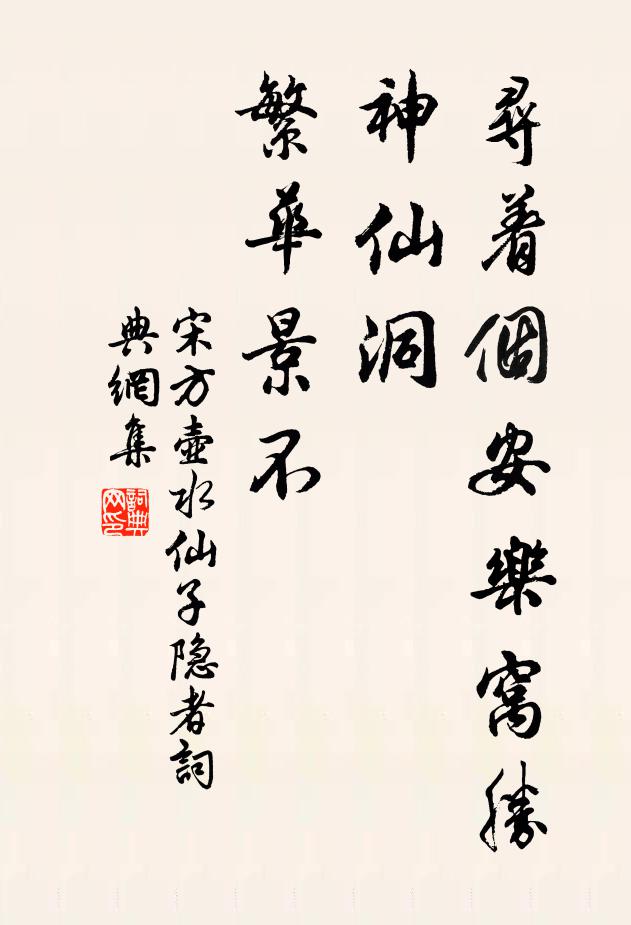 尋着個安樂窩勝
神仙洞
繁華景不
宋方壺水仙子隐者詞
典網集
詞典
网印